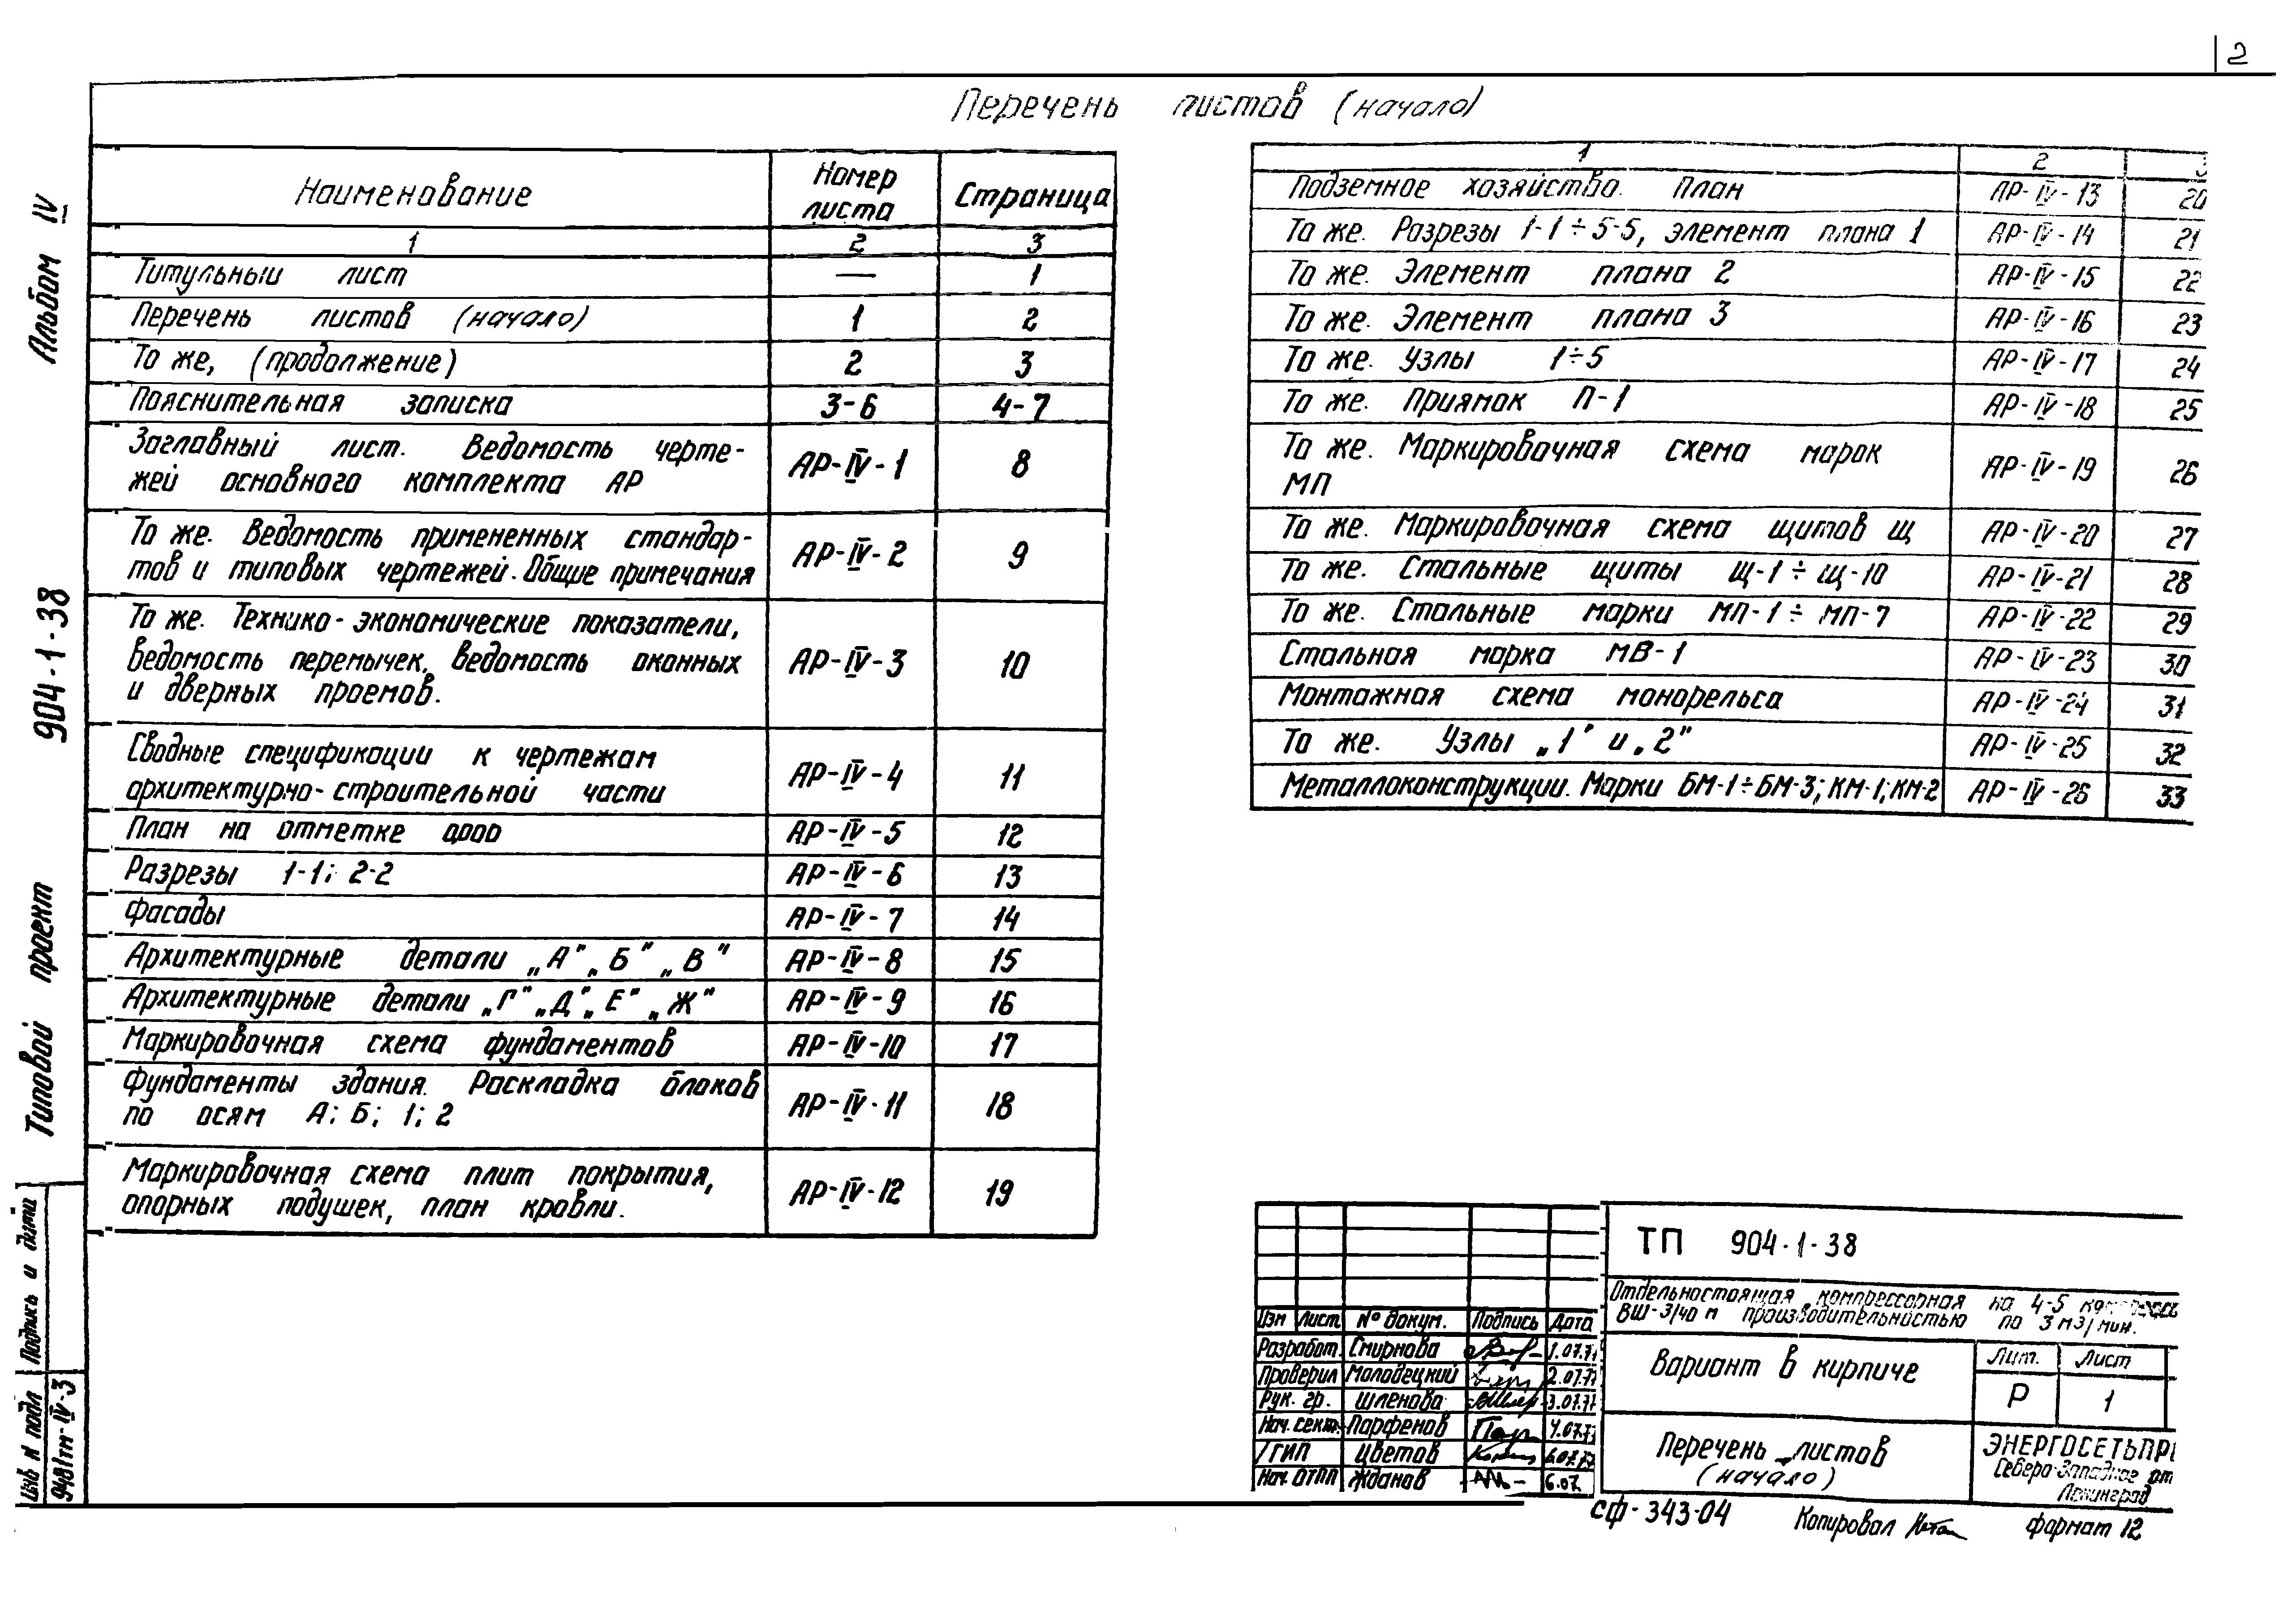 2
Перечень листов (начало)
Альбом IV
904-1-38
Типовой проект
Подпись и дата
Инв № подл
9481тм-IV-3
Наименование Номер листа Страница
1 2 3
Титульный лист — 1
Перечень листов (начало) 1 2
То же, (продолжение) 2 3
Пояснительная записка 3-6 4-7
Заглавный лист. Ведомость черте-
жей основного комплекта АР АР-IV-1 8
То же. Ведомость примененных стандар-
тов и типовых чертежей. Общие примечания АР-IV-2 9
То же. Технико-экономические показатели,
ведомость перемычек, ведомость оконных
и дверных проемов. АР-IV-3 10
Сводные спецификации к чертежам
архитектурно-строительной части АР-IV-4 11
План на отметке 0,000 АР-IV-5 12
Разрезы 1-1; 2-2 АР-IV-6 13
Фасады АР-IV-7 14
Архитектурные детали „А" „Б" „В" АР-IV-8 15
Архитектурные детали „Г" „Д" „Е" „Ж" АР-IV-9 16
Маркировочная схема фундаментов АР-IV-10 17
Фундаменты здания. Раскладка блоков
по осям А; Б; 1; 2 АР-IV-11 18
Маркировочная схема плит покрытия,
опорных подушек, план кровли. АР-IV-12 19
1 2 3
Подземное хозяйство. План АР-IV-13 20
То же. Разрезы 1-1÷5-5, элемент плана 1 АР-IV-14 21
То же. Элемент плана 2 АР-IV-15 22
То же. Элемент плана 3 АР-IV-16 23
То же. Узлы 1÷5 АР-IV-17 24
То же. Приямок П-1 АР-IV-18 25
То же. Маркировочная схема марок
МП АР-IV-19 26
То же. Маркировочная схема щитов Щ АР-IV-20 27
То же. Стальные щиты Щ-1÷Щ-10 АР-IV-21 28
То же. Стальные марки МП-1÷МП-7 АР-IV-22 29
Стальная марка МВ-1 АР-IV-23 30
Монтажная схема монорельса АР-IV-24 31
То же. Узлы „1" и „2" АР-IV-25 32
Металлоконструкции. Марки БМ-1÷БМ-3; КМ-1; КМ-2 АР-IV-26 33
ТП 904-1-38
Отдельностоящая компрессорная на 4-5
ВШ-3/40 м производительностью по 3 м3/мин.
Изм Лист № докум. Подпись Дата
Разработ. Смирнова 1.07.77
Проверил Молодецкий 2.07.77
Рук. гр. Шленова 3.07.77
Нач. сект. Парфенов 4.07.77
ГИП Цветов
Нач. ОТПП Жданов 6.07.
Вариант в кирпиче
Лит. Лист
Р 1
Перечень листов
(начало)
ЭНЕРГОСЕТЬПР
Северо-Западное от
Ленинград
сф-343-04 Копировал формат 12